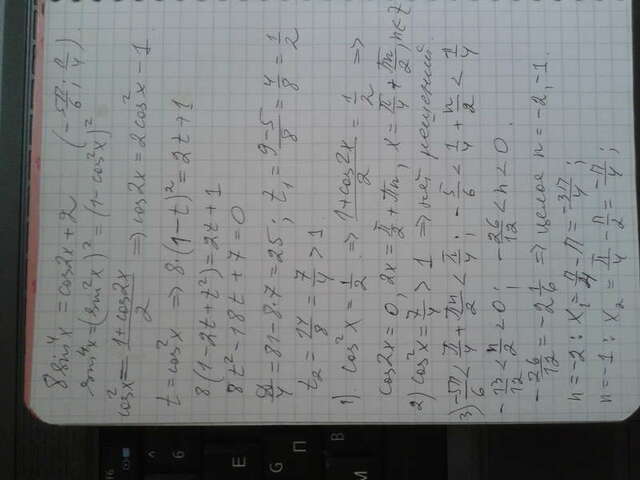 8sin⁴x = cos2x + 2   (-5π/6; π/4).
sin⁴x = (sin²x)² = (1 - cos²x)²
cos²x = (1 + cos2x)/2 => cos2x = 2cos²x - 1
t = cos²x => 8·(1 - t)² = 2t + 1
8(1 - 2t + t²) = 2t + 1
8t² - 18t + 7 = 0
D/4 = 81 - 8·7 = 25; t₁ = (9 - 5)/8 = 4/8 = 1/2
t₂ = 14/8 = 7/4 > 1
1). cos²x = 1/2 => (1 + cos2x)/2 = 1/2 =>
cos2x = 0, 2x = π/2 + πn, x = π/4 + πn/2, n∈Z
2) cos²x = 7/4 > 1 => нет решений.
3) -5π/6 < π/4 + πn/2 < π/4; -5/6 < 1/4 + n/2 < 1/4
-13/12 < n/2 < 0; -26/12 < n < 0.
-26/12 = -2 1/6 => целое n = -2, -1.
n = -2: x₁ = π/4 - π = -3π/4;
n = -1: x₂ = π/4 - π/2 = -π/4;
Б
E
G
П
M
B